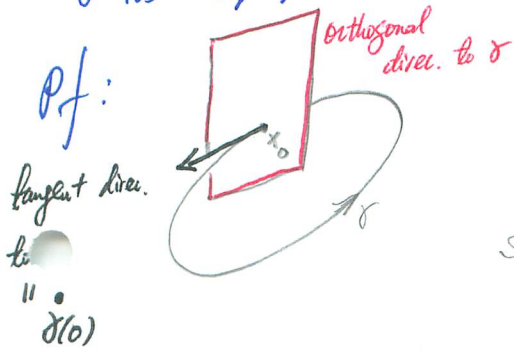 Pf:
orthogonal
direc. to γ
x₀
tangent direc.
γ
γ̇(0)